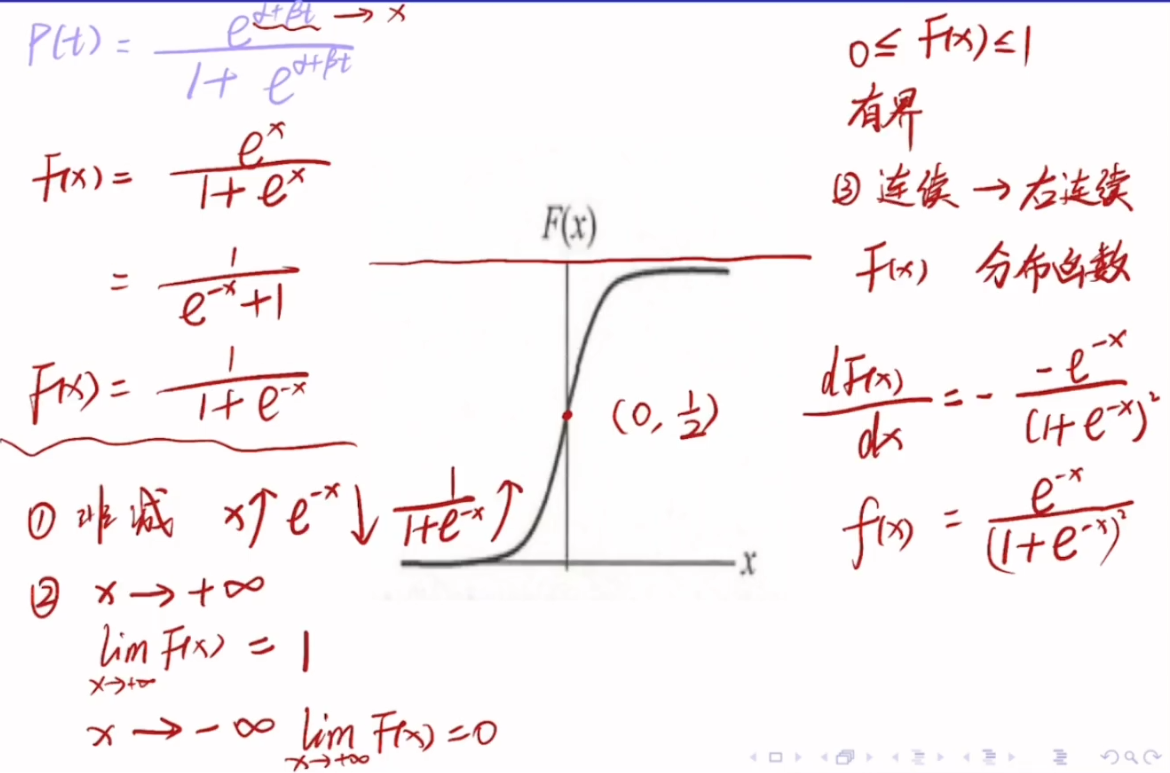 P(t) = e^{α+βt} / (1 + e^{α+βt}) → x
F(x) = e^x / (1 + e^x)
= 1 / (e^{-x} + 1)
F(x) = 1 / (1 + e^{-x})
① 非减 x↑ e^{-x}↓ 1/(1+e^{-x})↑
② x → +∞
lim_{x→+∞} F(x) = 1
x → -∞ lim_{x→+∞} F(x) = 0
F(x)
(0, 1/2)
x
0 ≤ F(x) ≤ 1
有界
③ 连续 → 右连续
F(x) 分布函数
dF(x)/dx = - -e^{-x} / (1+e^{-x})^2
f(x) = e^{-x} / (1+e^{-x})^2